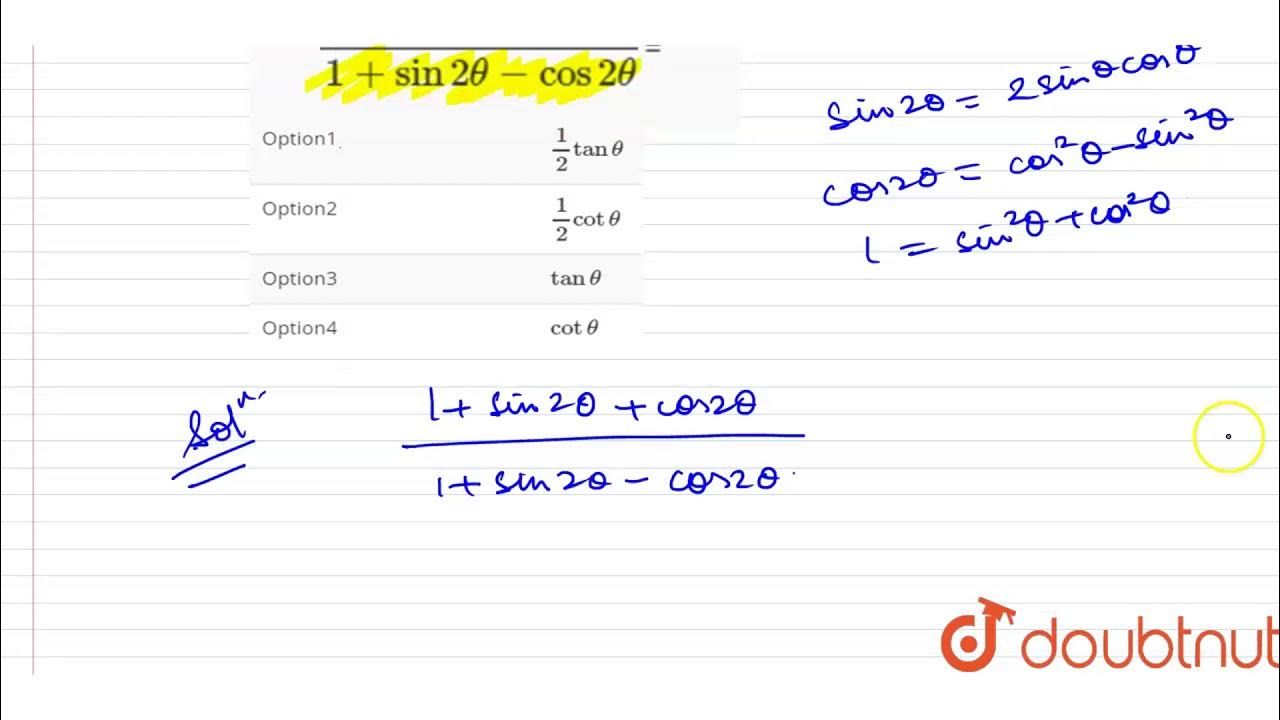 1 + sin 2θ − cos 2θ =
Option1 1/2 tan θ
Option2 1/2 cot θ
Option3 tan θ
Option4 cot θ
sin2θ = 2sinθcosθ
cos2θ = cos²θ − sin²θ
1 = sin²θ + cos²θ
Solⁿ.
1 + sin2θ + cos2θ
1 + sin2θ − cos2θ
doubtnut